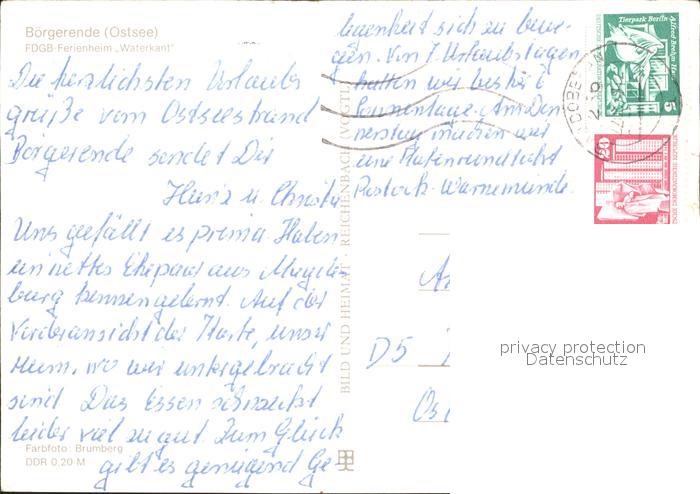 Börgerende (Ostsee)
FDGB-Ferienheim „Waterkant"
Die herzlichsten Urlaubs
grüße vom Ostseestrand
Börgerende sendet Dir
Heinz u. Christa
Uns gefällt es prima. Haben
ein nettes Ehepaar aus Magde-
burg kennengelernt. Auf der
Vorderansicht der Karte, unser
Heim, wo wir untergebracht
sind. Das Essen schmeckt
leider viel zu gut. Zum Glück
gibt es genügend Ge-
Farbfoto: Brumberg
DDR 0,20 M
legenheit sich zu bewe-
gen. Von 7 Urlaubstagen
hatten wir bisher 6
Sonnentage. Am Don-
nerstag machen wir
eine Hafenrundfahrt
Rostock-Warnemünde.
BILD UND HEIMAT · REICHENBACH (VOGTL)
Tierpark Berlin
Alfred Brehm Haus
5
20
DEUTSCHE DEMOKRATISCHE REPUBLIK
D5
privacy protection
Datenschutz